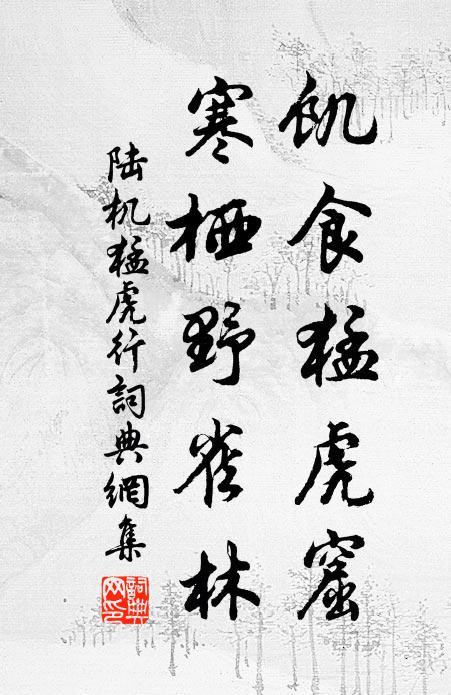 飢食猛虎窟
寒栖野雀林
陆机猛虎行詞典網集